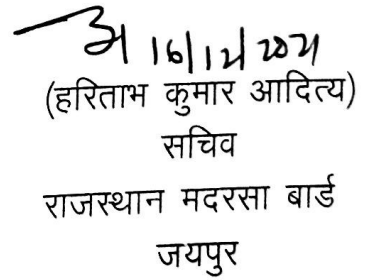 16/12/2021
(हरिताभ कुमार आदित्य)
सचिव
राजस्थान मदरसा बार्ड
जयपुर